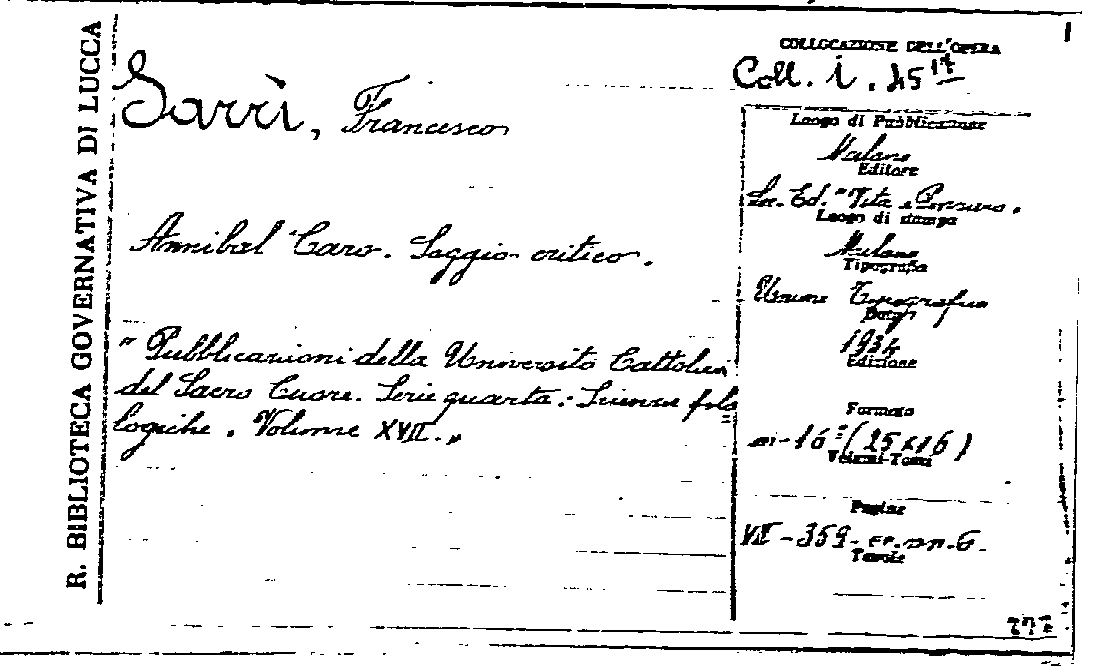 R. BIBLIOTECA GOVERNATIVA DI LUCCA
Sarrì, Francesco
Annibal Caro. Saggio critico.
"Pubblicazioni della Università Cattolica
del Sacro Cuore. Serie quarta: Scienze filo
logiche. Volume XVII."
COLLOCAZIONE DELL'OPERA
Coll. i. 45 17
Luogo di Pubblicazione
Milano
Editore
Soc. Ed. "Vita e Pensiero.
Luogo di stampa
Milano
Tipografia
Unione Tipografica
1934
Edizione
Formato
in-16° (25x16)
Volumi-Tomi
Pagine
VII-359- cc. nn. 6.
Tavole